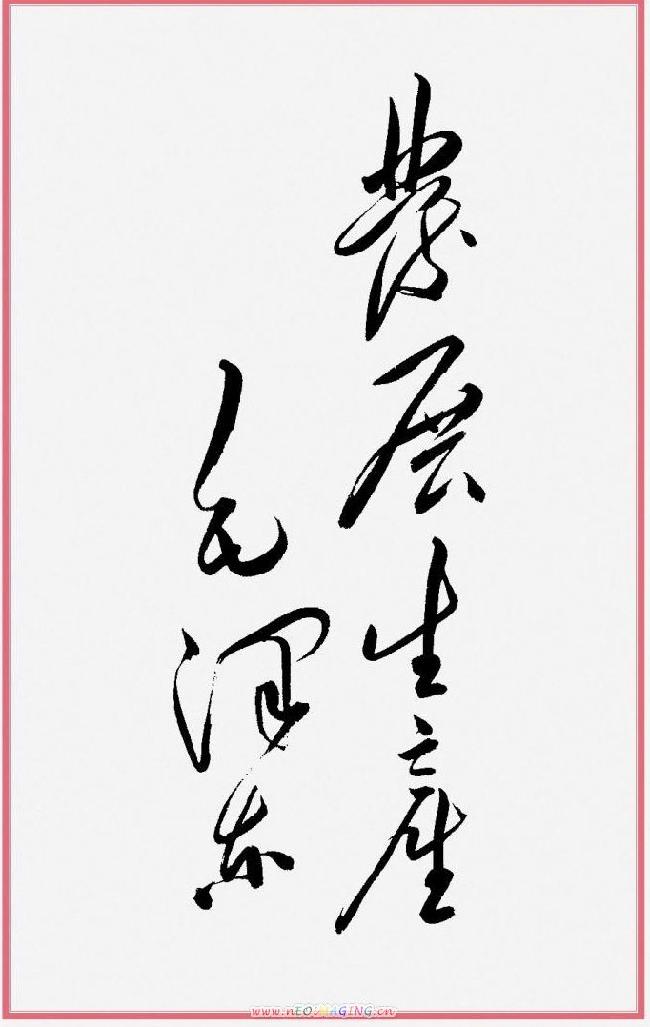 發展生產
毛澤东
www.nEOiMAGING.cn